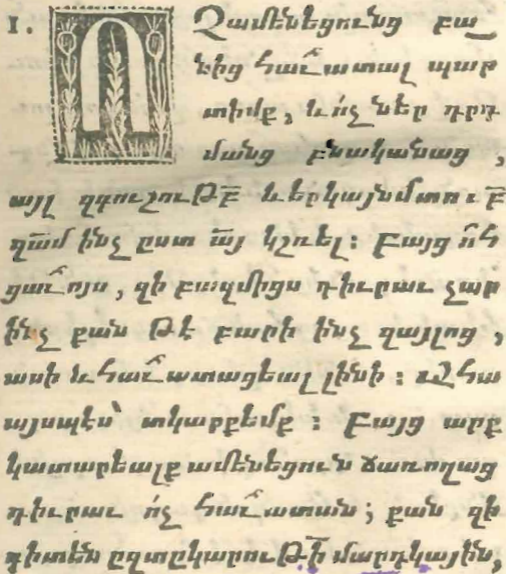 1. Ո Չ ամենեցունց բա֊
նից հաւատալ պար
տիմք, և ո՛չ ներ դրդ
մանց բնականաց,
այլ զգուշուԹբ̅ և երկայնմտուբ̅
զա̅մ ինչ ըստ ա̅յ կշռել։ Բայց ո̅հ
ցաւոյս, զի բազմիցս դիւրաւ չար
ինչ քան Թէ բարի ինչ զայլոց,
ասի և հաւատացեալ լինի։ Զհա
այսպէս՝ տկարքեմք։ Բայց արք
կատարեալք ամենեցուն ճառողաց
դիւրաւ ո՛չ հաւատան; քան զի
գիտեն ըզտըկարուԹի̅ մարդկային,